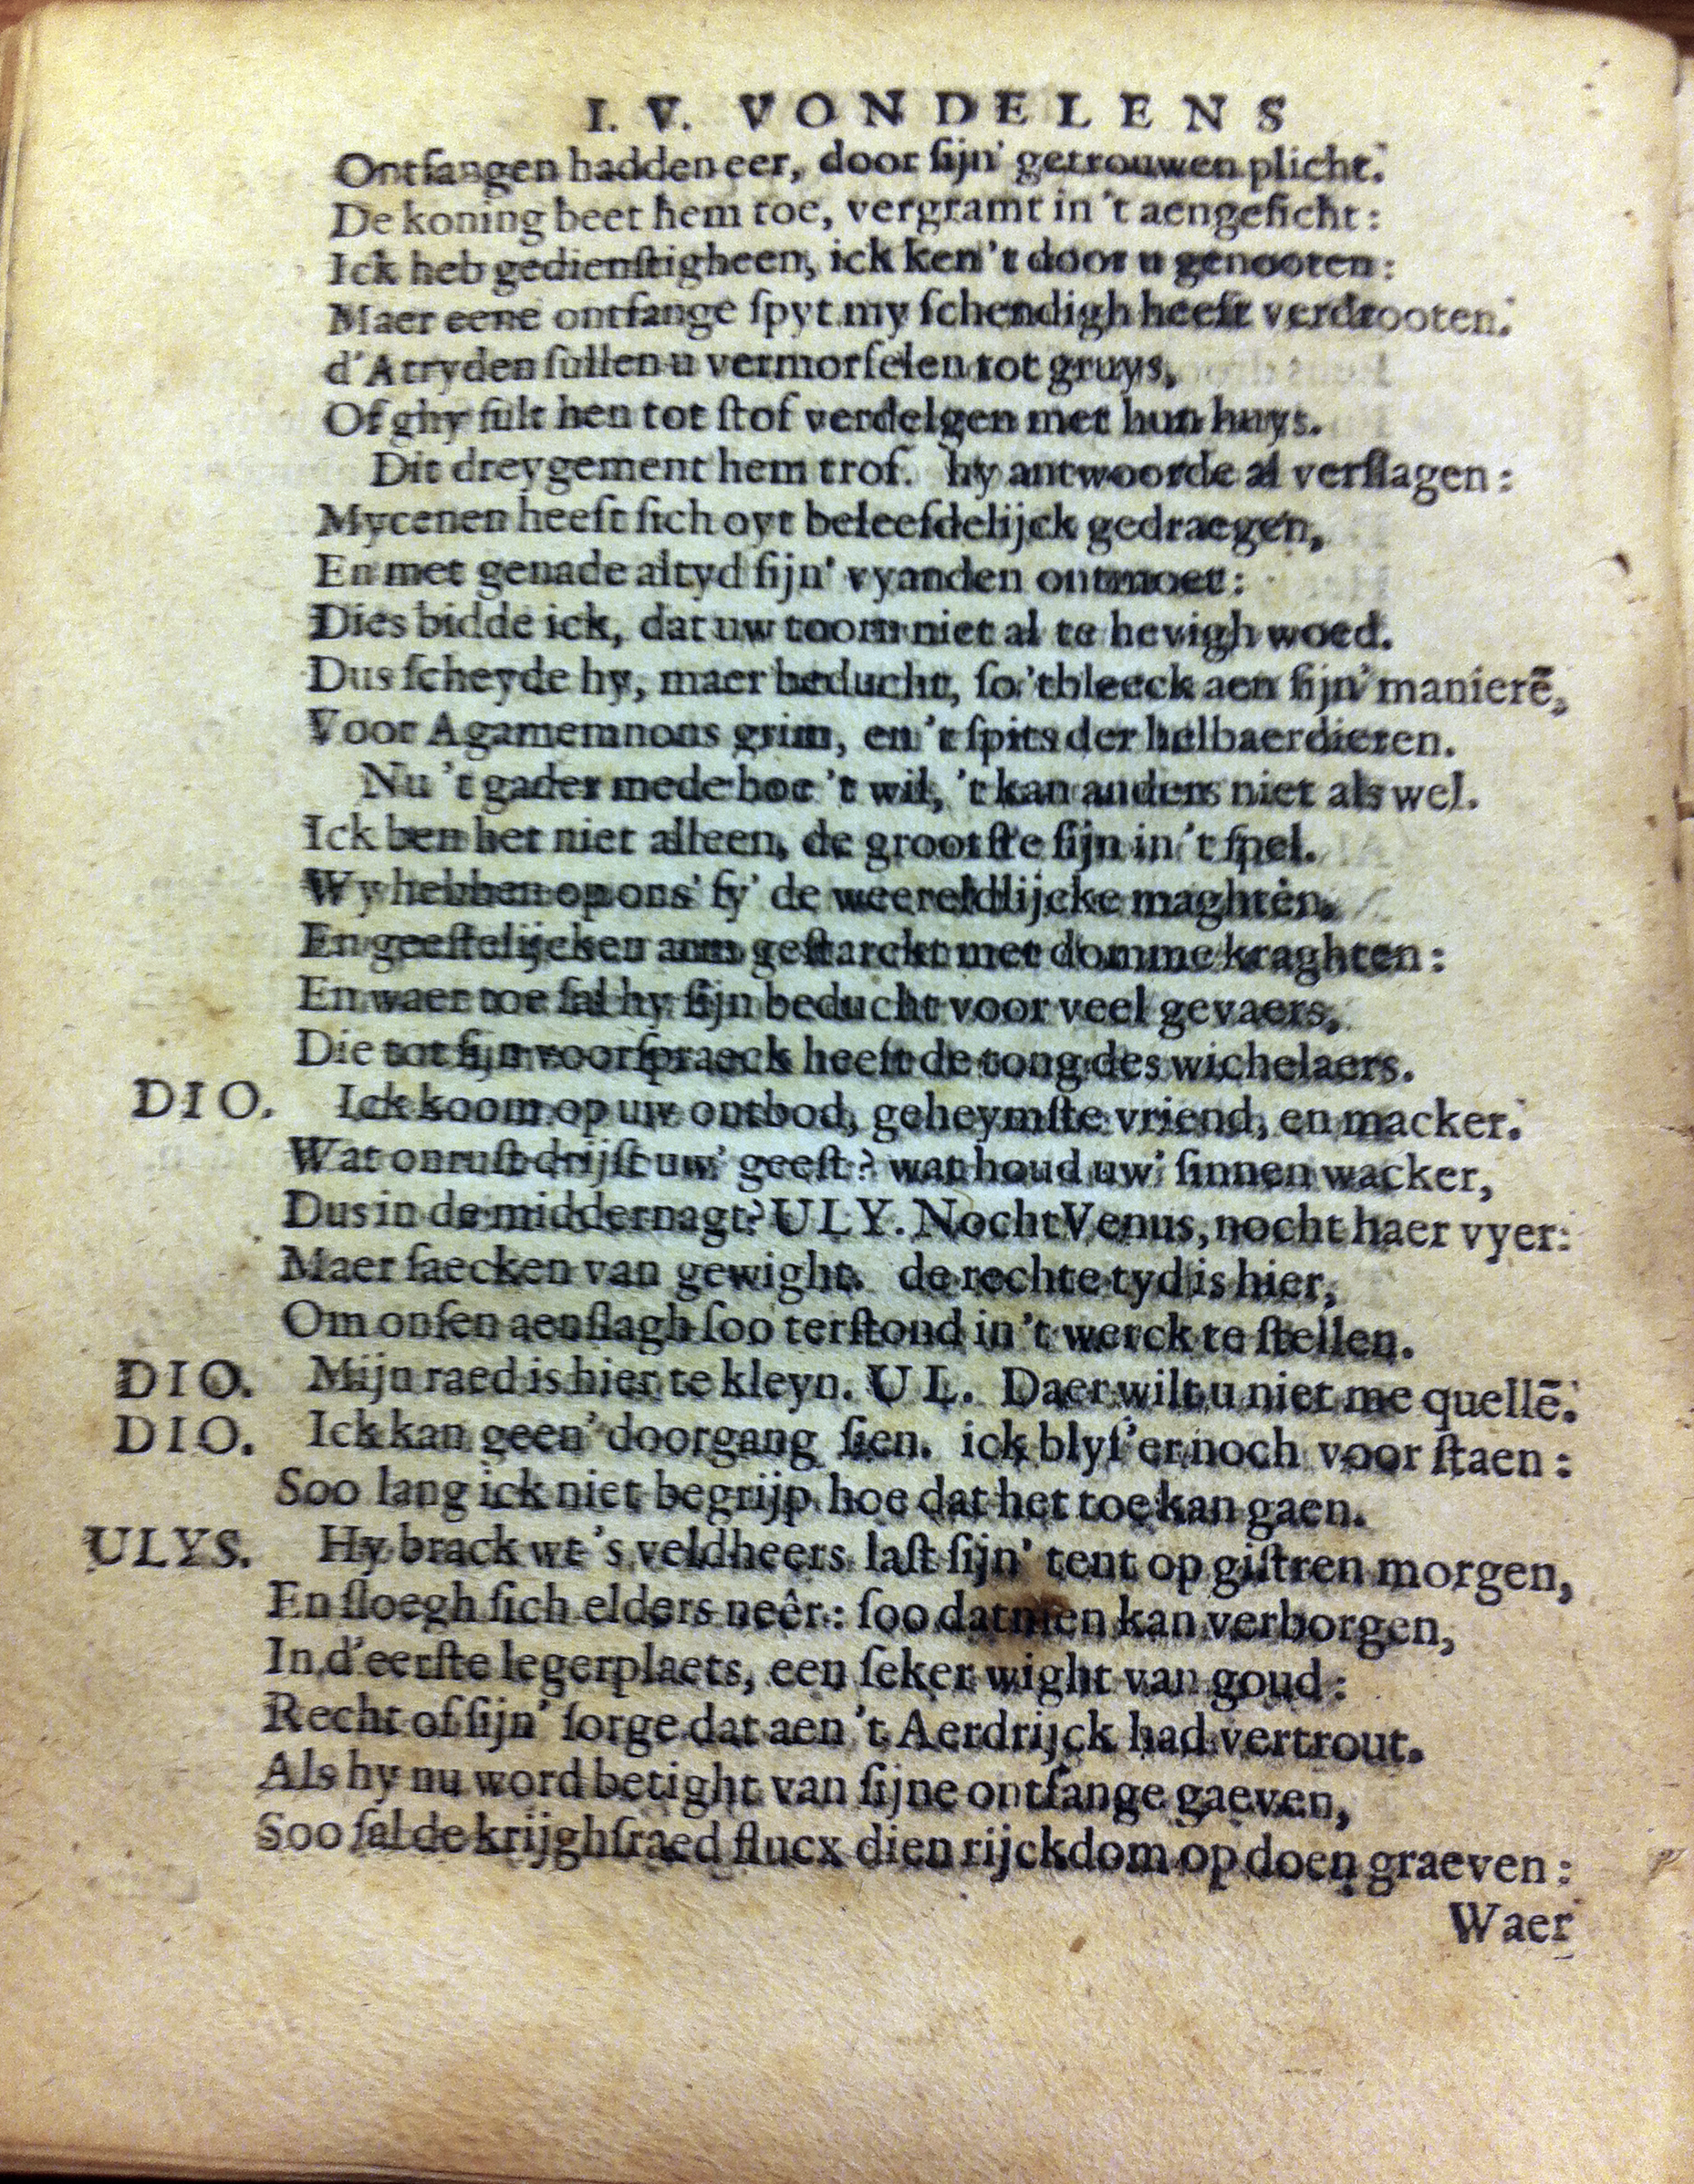 I. V. VONDELENS
Ontfangen hadden eer, door ſijn' getrouwen plicht.
De koning beet hem toe, vergramt in 't aengeſicht:
Ick heb gedienſtigheen, ick ken 't door u genooten:
Maer eene ontfange ſpyt my ſchendigh heeft verdrooten.
d'Atryden ſullen u vermorſelen tot gruys,
Of ghy ſult hen tot ſtof verdelgen met hun huys.
Dit dreygement hem trof. hy antwoorde al verſlagen:
Mycenen heeft ſich oyt beleefdelijck gedraegen,
En met genade altyd ſijn' vyanden ontmoet:
Dies bidde ick, dat uw toorn niet al te hevigh woed.
Dus ſcheyde hy, maer beducht, ſo 't bleeck aen ſijn' manierē,
Voor Agamemnons grim, en 't ſpits der helbaerdieren.
Nu 't gader mede hoe 't wil, 't kan anders niet als wel.
Ick ben het niet alleen, de grootſte ſijn in 't ſpel.
Wy hebben op ons' ſy' de weereldlijcke maghten,
En geeſtelijcken arm geſtarckt met domme kraghten:
En waer toe ſal hy ſijn beducht voor veel gevaers,
Die tot ſijn voorſpraeck heeft de tong des wichelaers.
DIO. Ick koom op uw ontbod, geheymſte vriend, en macker.
Wat onruſt drijft uw' geeſt? wat houd uw' ſinnen wacker,
Dus in de middernagt? ULY. Nocht Venus, nocht haer vyer:
Maer ſaecken van gewight. de rechte tyd is hier,
Om onſen aenſlagh ſoo terſtond in 't werck te ſtellen.
DIO. Mijn raed is hier te kleyn. UL. Daer wilt u niet me quellē.
DIO. Ick kan geen' doorgang ſien. ick blyf 'er noch voor ſtaen:
Soo lang ick niet begrijp hoe dat het toe kan gaen.
ULYS. Hy brack wt 's veldheers laſt ſijn' tent op giſtren morgen,
En ſloegh ſich elders neêr: ſoo datmen kan verborgen,
In d'eerſte legerplaets, een ſeker wight van goud:
Recht of ſijn' ſorge dat aen 't Aerdrijck had vertrout.
Als hy nu word betight van ſijne ontfange gaeven,
Soo ſal de krijghſraed flucx dien rijckdom op doen graeven:
Waer